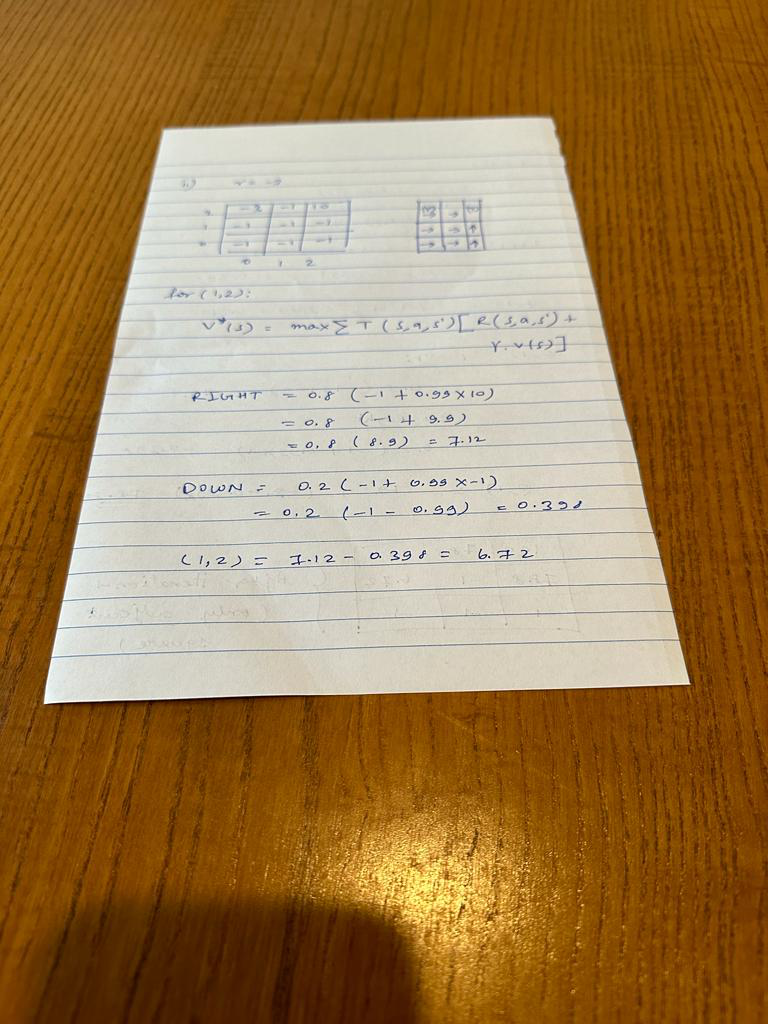 ii) r = -3
2 -3 -1 10
1 -1 -1 -1
0 -1 -1 -1
0 1 2
→ →
→ → ↑
→ → ↑
for (1,2):
V*(s) = max Σ T (s,a,s') [ R(s,a,s') +
γ. v(s)]
RIGHT = 0.8 (-1 + 0.99 × 10)
= 0.8 (-1 + 9.9)
= 0.8 (8.9) = 7.12
DOWN = 0.2 (-1 + 0.99 × -1)
= 0.2 (-1 - 0.99) = 0.398
(1,2) = 7.12 - 0.398 = 6.72